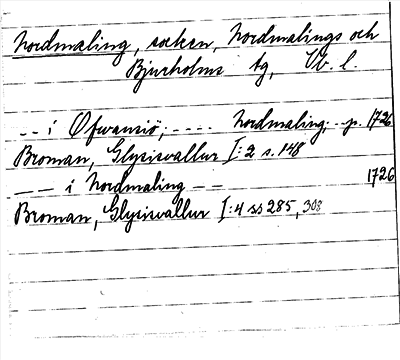 Nordmaling, socken, Nordmalings och
Bjurholms tg, Vb. l.
-- i Ofwansiö, ---- Nordmaling; -- p. 1726
Broman, Glysisvallur I:2 s. 148
-- -- i Nordmaling -- -- 1726
Broman, Glysisvallur I:4 ss 285, 308